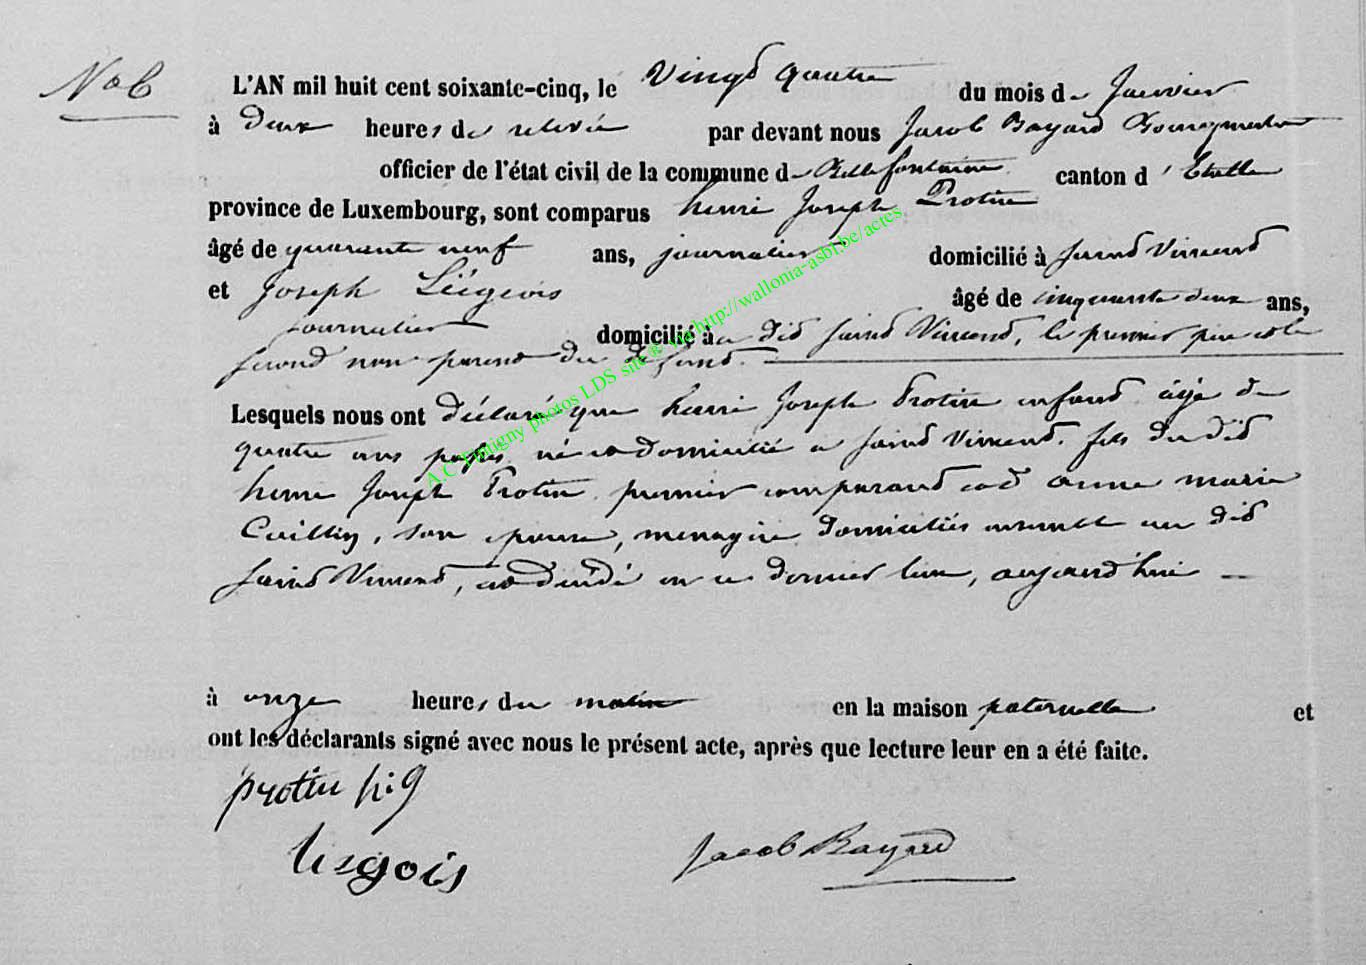 No 6
L'AN mil huit cent soixante-cinq, le vingt quatre du mois de Janvier
à deux heures de relevée par devant nous Jacob Bayard Bourgmestre
officier de l'état civil de la commune de Bellefontaine canton d'Etalle
province de Luxembourg, sont comparus henri Joseph Protin
âgé de quarante neuf ans, journalier domicilié à saint Vincent
et Joseph Liégeois âgé de cinquante deux ans,
journalier domicilié au dit saint Vincent, le premier père et le
second non parent du défunt.
Lesquels nous ont déclaré que henri Joseph Protin enfant âgé de
quatre ans passés né et domicilié a saint Vincent, fils du dit
henri Joseph Protin premier comparant et d'anne marie
son épouse, menagère domiciliés ensemble au dit
saint Vincent, est décédé en ce dernier lieu, aujourd'hui
à onze heures du matin en la maison paternelle et
ont les déclarants signé avec nous le présent acte, après que lecture leur en a été faite.
protin h.j
liegois Jacob Bayard
A.C Tintigny photos LDS site @ via http://wallonia-asbl.be/actes